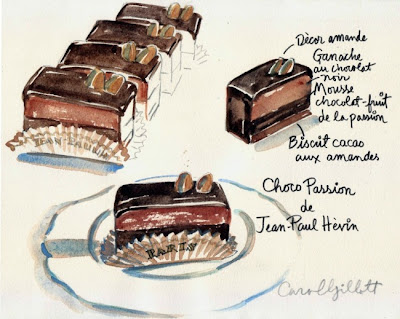 Dècor amande
Ganache
au chocolat
noir
Mousse
chocolat-fruit
de la passion
Biscuit cacao
aux amandes
Choco Passion
de
Jean-Paul Hevin
PARIS
Carol Gillott